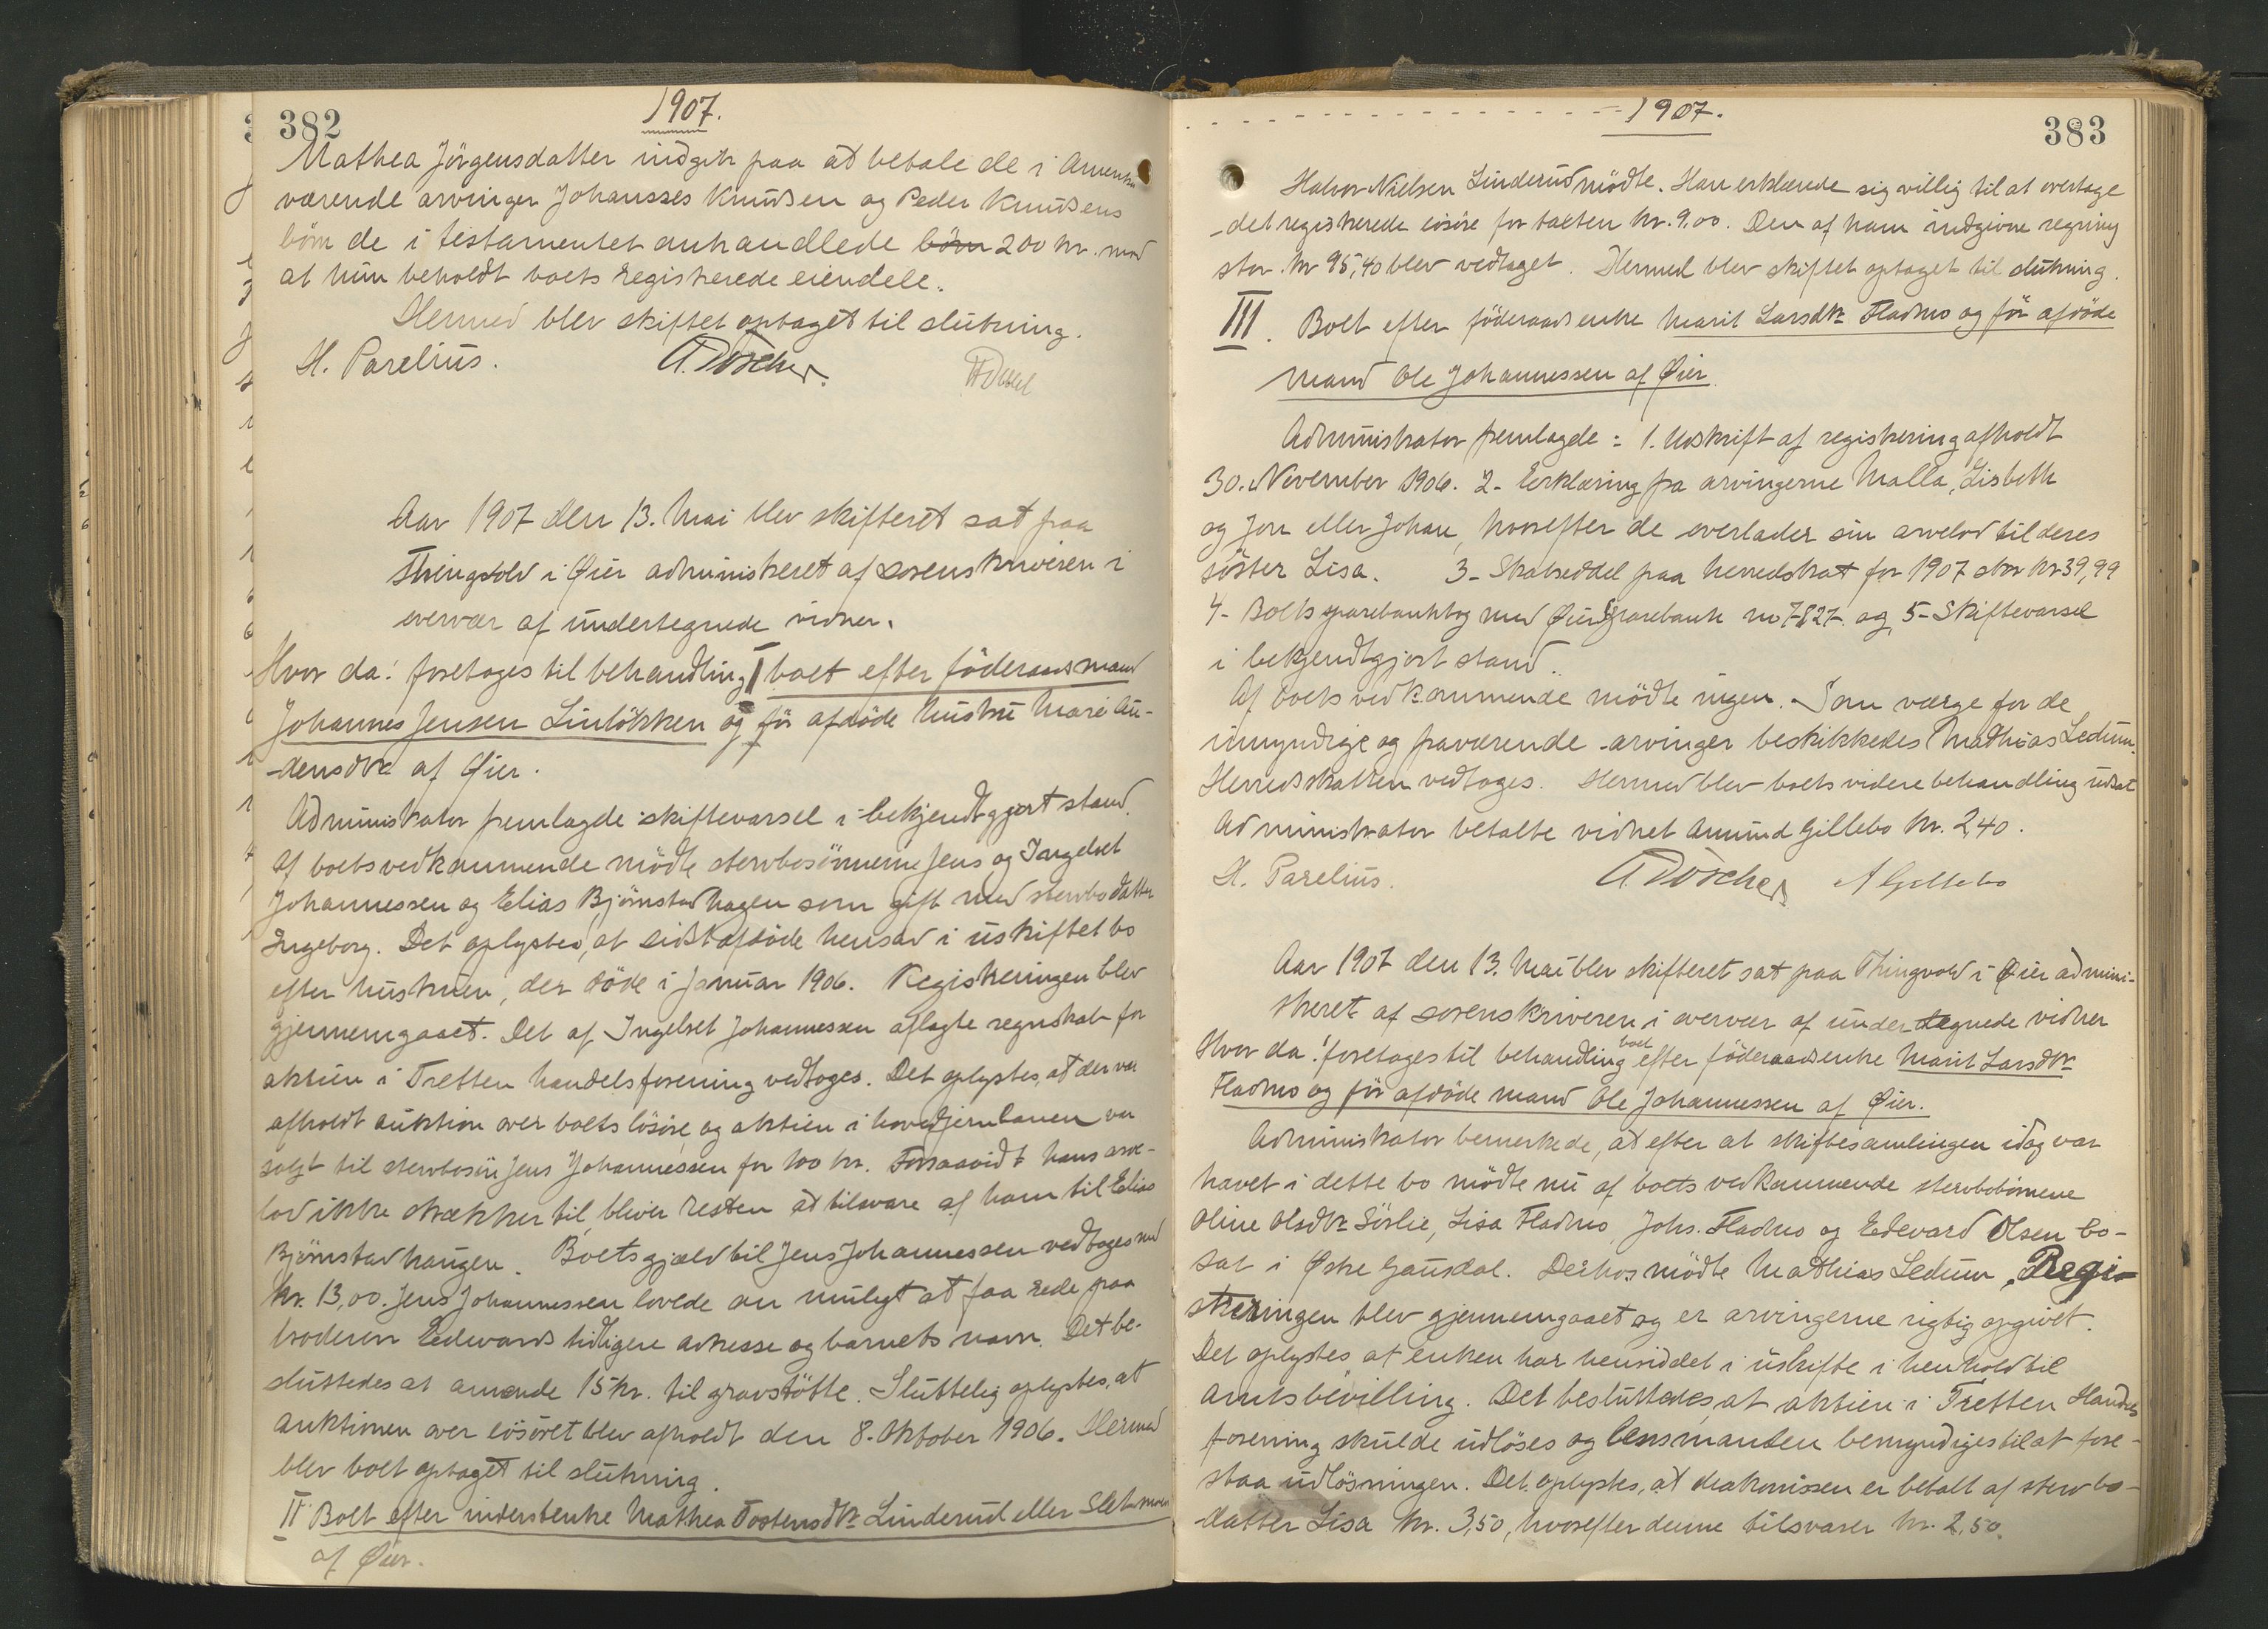 382
1907.
Mathea Jörgensdatter indgik paa at betale de i Amerika
værende arvinger Johansses Knudsen og Peder Knudsens
börn de i testamentet anhandlede börn 200 kr. mod
at hun beholdt boets registrerede eiendele.
Hermed blev skiftet optaget til slutning.
H. Parelius.
Aar 1907 den 13. Mai blev skifteret sat paa
Thingvold i Øier administreret af sorenskriveren i
overvær af undertegnede vidner.
Hvor da: foretoges til behandling I boet efter föderaadsmand
Johannes Jensen Linlökken og för afdöde hustru Mari Au-
densdtr af Øier.
Administrator fremlagde skiftevarsel i bekjendtgjort stand.
Af boets vedkommende mödte stervbosönnerne Jens og Ingebret
Johannessen og Elias Björnstadhagen som gift med stervbodatter
Ingeborg. Det oplystes, at sidstafdöde hensad i uskiftet bo
efter hustruen, der döde i Januar 1906. Registreringen blev
gjennemgaaet. Det af Ingebret Johannessen aflagte regnskab for
aktien i Tretten handelsforening vedtoges. Det oplystes, at der var
afholdt auktion over boets lösöre og aktien i hovedjernbanen var
solgt til stervbosön Jens Johannessen for 100 kr. Forsaavidt hans arve-
lod ikke strækker til bliver resten at tilsvare af ham til Elias
Björnstadhaugen. Boets gjæld til Jens Johannessen vedtoges med
kr. 13,00. Jens Johannessen lovede om muligt at faa rede paa
broderen Eedwards tidligere adresse og barnets navn. Det be-
sluttedes at anvende 15 kr. til gravstötte. Sluttelig oplystes, at
auktionen over lösöret blev afholdt den 8. Oktober 1906. Hermed
blev boet optaget til slutning.
II Boet efter inderstenke Mathea Tostensdtr Linderud eller Sletmoen
af Øier.
1907.
383
Halvor Nielsen Linderud mödte. Han erklærede sig villig til at overtage
det registrerede lösöre for taxten kr. 9,00. Den af ham indgivne regning
stor kr 95,40 blev vedtaget. Hermed blev skiftet optaget til slutning.
III. Boet efter föderaadsenke Marit Larsdtr Fladmo og för afdöde
mand Ole Johannessen af Øier.
Administrator fremlagde: 1. Udskrift af registrering afholdt
30. November 1906. 2- Erklæring fra arvingerne Malla, Lisbeth
og Jon eller Johan, hvorefter de overlader sin arvelod til deres
söster Lisa. 3- Skatseddel paa herredskat for 1907 stor kr 39,99
4- Boets sparebankbog med Øier Sparebank no 7827 og 5- Skiftevarsel
i bekjendtgjort stand.
Af boets vedkommende mödte ingen. Som værge for de
umyndige og fraværende arvinger beskikkedes Mathias Ledum.
Herredskatten vedtoges. Hermed blev boets videre behandling udsat
Administrator betalte vidnet Amund Gillebo kr. 2,40.
H. Parelius. A Gillebo
Aar 1907 den 13. Mai blev skifteret sat paa Thingvold i Øier admini-
streret af sorenskriveren i overvær af undertegnede vidner
Hvor da: foretoges til behandling boet efter föderaadsenke Marit Larsdtr
Fladmo og för afdöde mand Ole Johannessen af Øier.
Administrator bemerkede, at efter at skiftesamlingen idag var
hævet i dette bo mödte nu af boets vedkommende stervbobörnene
Oline Olsdtr Sörlie, Lisa Fladmo, Johs. Fladmo og Eedevard Olsen bo-
sat i Østre Gausdal. Derhos mödte Mathias Ledum. Regi-
streringen blev gjennemgaaet og er arvingerne rigtig opgivet.
Det oplystes at enken har hensiddet i uskifte i henhold til
amtsbevilling. Det besluttedes, at aktien i Tretten Handels
forening skulde udlöses og lensmanden bemyndiges til at fore-
staa udlösningen. Det oplystes, at deakonissen er betalt af stervbo-
datter Lisa kr. 3,50, hvorefter denne tilsvarer kr. 2,50.